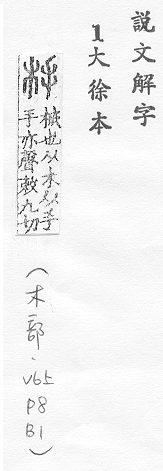 說文解字
1大徐本
杽 械也从木从手
手亦聲敕九切
(木部.V6上 P8 B1)